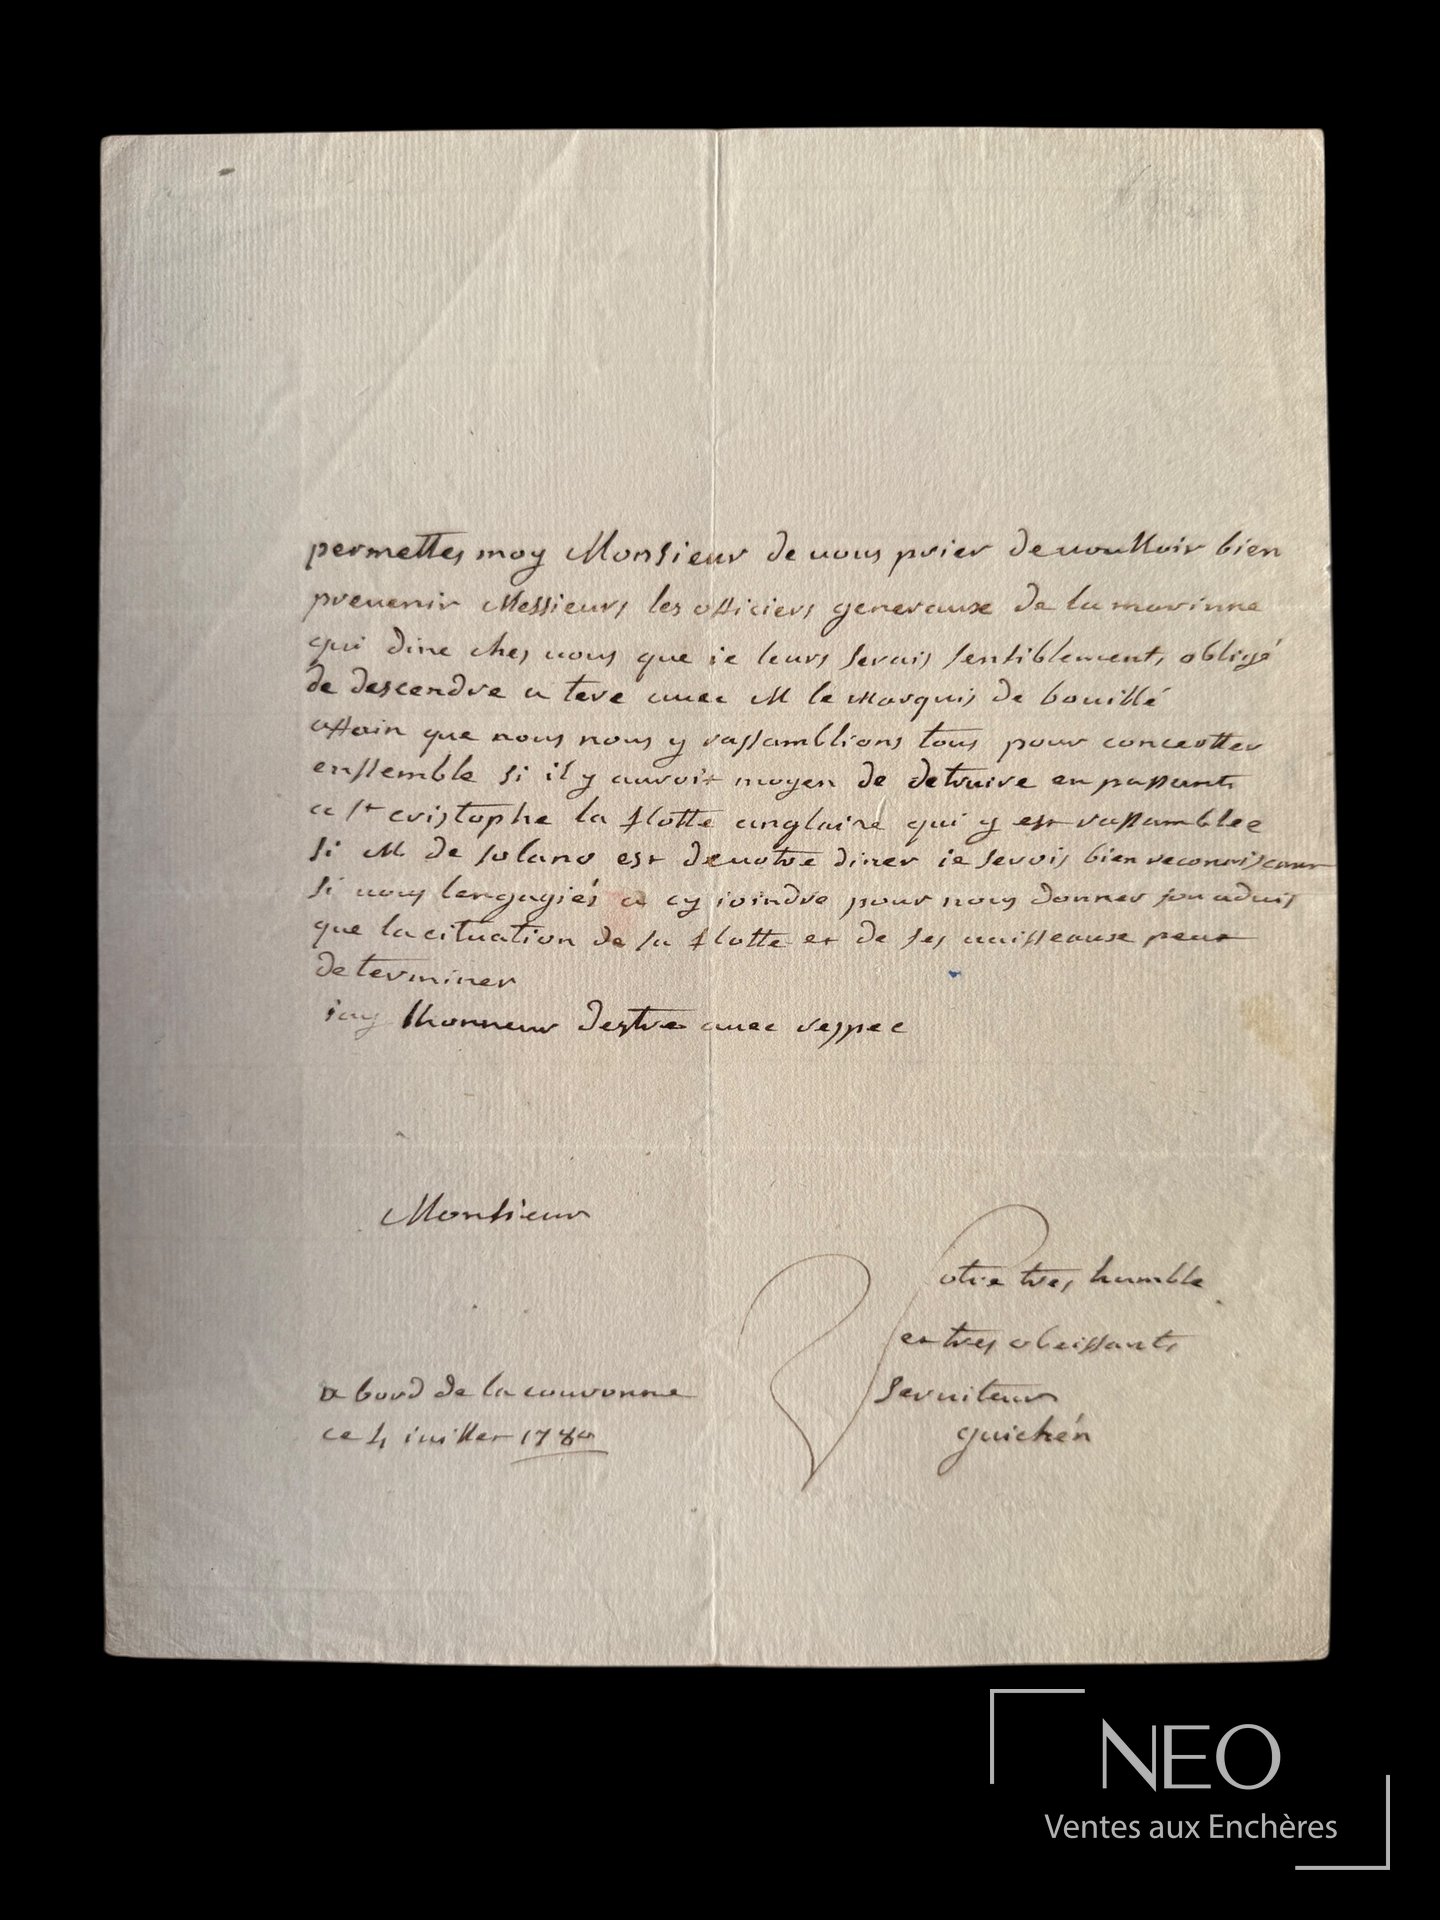 permettes moy Monsieur de vous prier de voulloir bien
prevenir Messieurs les officiers generaux de la marinne
qui dine ches vous que ie leurs serais sensiblement obligé
de descendre a tere avec M le Marquis de bouillé
affain que nous nous y rassamblions tous pour concertter
enssemble si il y auroit moyen de detruire en passant
a st cristophe la flotte anglaise qui y est rassamblee
si M de solano est de votre diner ie serois bien reconnoiscent
si vous lengagiés a cy joindre pour nous donner son advis
que la cituation de sa flotte et de ses vaisseaux peut
determiner
iay lhonneur destre avec respec
Monsieur
Votre tres humble
et tres obeissant
serviteur
guichén
a bord de la couronne
ce 4 iuillet 1780
NEO
Ventes aux Enchères